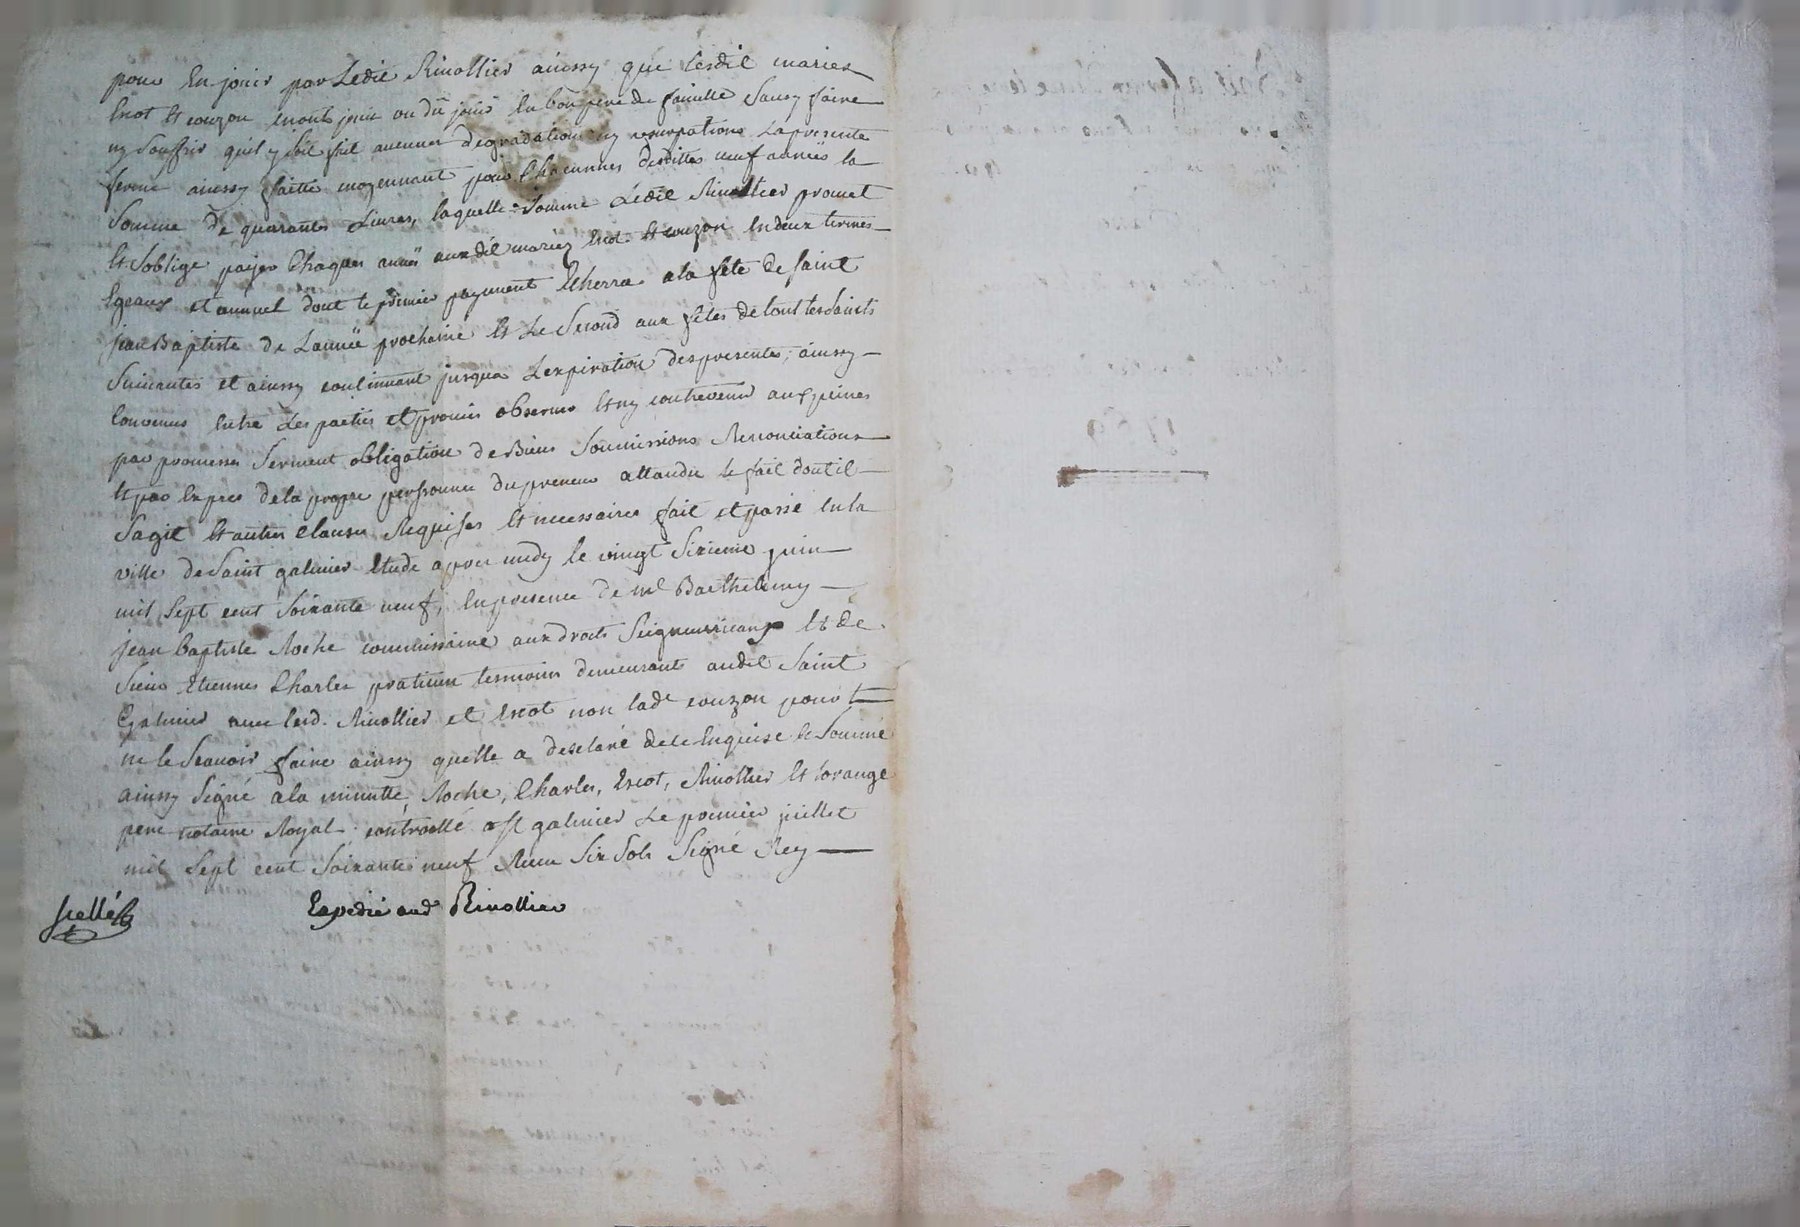 pour En jouir par Ledit Rivollier ainssy que lesdit mariez
Escot Et couzon enont joui ou dû jouir En bon pere de famille Sansy faire
ny Souffrir quil y Soit fait aucunes degradations ny usurpations Lapresente
ferme ainssy faitte moyennant pour Chacunnes desdittes neuf années la
Somme de quarantes Livres, laquelle Somme Ledit Rivollier promet
Et Soblige payer Chaques année auxdit mariez Escot Et couzon Endeux termes
Egeaux et annuel dont le premier payement Echerra ala fete de saint
jean Baptiste de Lannée prochaine Et Le Second aux fêtes de tout les saints
Suivantes et ainssy continuant jusqua Lexpiration des presentes, ainssy
Convenus Entre Les parties et promis observer Et ny contrevenir aux peines
par promesses Serment obligation de Biens Soumissions Renonciations
Et par Exprès de la propre personne du preneur attandu le fait dont il
Sagit Et autres clauses Requises Et necessaires fait et passé en la
ville de Saint galmier Etude apres midy le vingt Sixieme juin
mil Sept cent Soixante neuf, En presence de me Barthelemy
jean Baptiste Roche commissaire aux droits Seigneuriaux Et de
Sieur Etiennes Charles praticien temoins demeurants audit Saint
Galmier avec led. Rivollier et Escot non lade couzon pour
ne le Scavoir faire ainssy quelle a desclaré de ce Enquise Et Sommé
ainssy Signé ala minutte, Roche, Charles, Escot, Rivollier Et Lorange
pere notaire Royal controllé a St galmier Le premier juillet
mil Sept cent Soixante neuf Recu Six Sols Signé Rey
scellé
Expedié aud Rivollier
1769